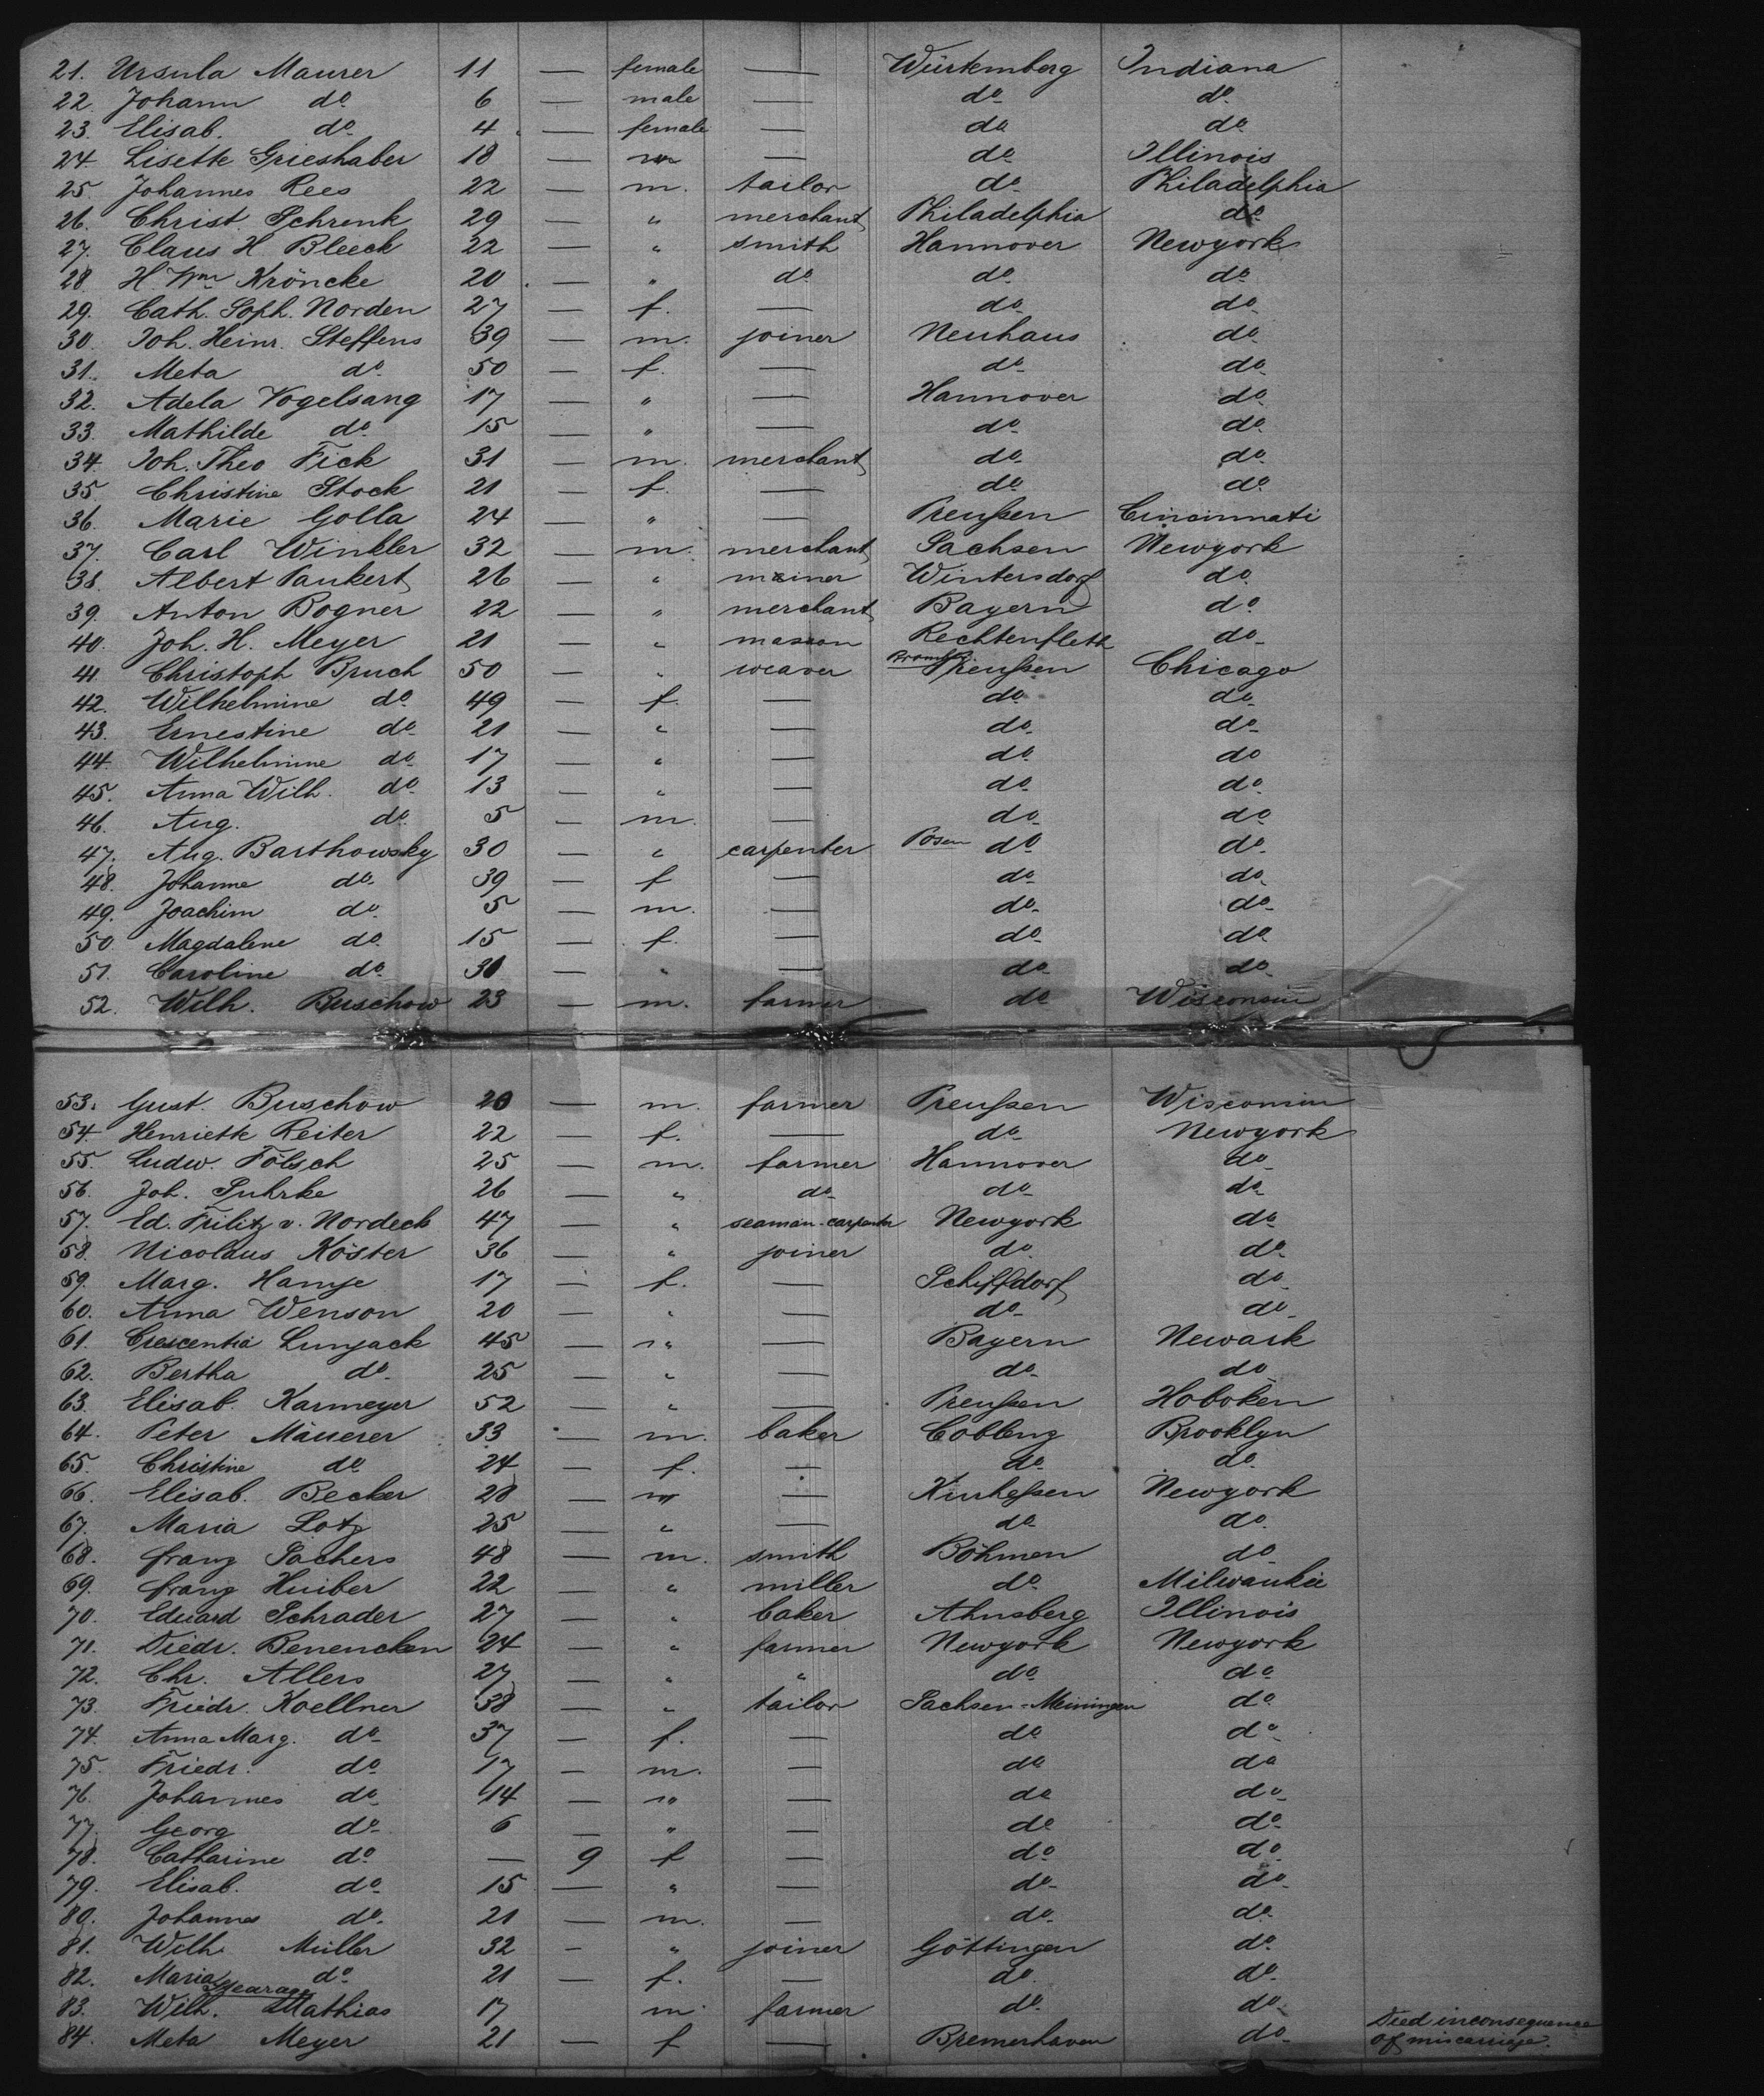 21. Ursula Maurer 11 — female — Würtemberg Indiana
22. Johann do 6 — male — do do
23. Elisab. do 4 — female — do do
24. Lisette Grieshaber 18 — — do Illinois
25. Johannes Rees 22 — m. tailor do Philadelphia
26. Christ. Schrenk 29 — " merchant Philadelphia do
27. Claus H. Bleeck 22 — " smith Hannover Newyork
28. H. Wm Kröncke 20 — " do do do
29. Cath. Soph. Norden 27 — f. — do do
30. Joh. Heinr. Steffens 39 — m. joiner Neuhaus do
31. Meta do 50 — f. — do do
32. Adela Vogelsang 17 — " — Hannover do
33. Mathilde do 15 — " — do do
34. Joh. Theo Fick 31 — m. merchant do do
35. Christine Stock 21 — f. — do do
36. Marie Golla 24 — " — Preußen Cincinnati
37. Carl Winkler 32 — m. merchant Sachsen Newyork
38. Albert Paukert 26 — " miner Wintersdorf do
39. Anton Bogner 22 — " merchant Bayern do
40. Joh. H. Meyer 21 — " mason Rechtenfleth do
41. Christoph Bruch 50 — " weaver Preußen Chicago
42. Wilhelmine do 49 — f. — do do
43. Ernestine do 21 — " — do do
44. Wilhelmine do 17 — " — do do
45. Anna Wilh. do 13 — " — do do
46. Aug. do 5 — m. — do do
47. Aug. Barthowsky 30 — " carpenter Posen do do
48. Johanne do 39 — f — do do
49. Joachim do 5 — m. — do do
50. Magdalene do 15 — f. — do do
51. Caroline do 30 — " — do do
52. Wilh. Buschow 23 — m. farmer do Wisconsin
53. Gust. Buschow 20 — m. farmer Preußen Wisconsin
54. Henriette Reiter 22 — f. — do Newyork
55. Ludw. Fölsch 25 — m. farmer Hannover do
56. Joh. Suhrke 26 — " do do do
57. Ed. Frilitz v. Nordeck 47 — " seaman-carpenter Newyork do
58. Nicolaus Köster 36 — " joiner do do
59. Marg. Hamje 17 — f. — Schiffdorf do
60. Anna Wenson 20 — " — do do
61. Crescentia Lunjack 45 — " — Bayern Newark
62. Bertha do 25 — " — do do
63. Elisab. Karmeyer 52 — " — Preußen Hoboken
64. Peter Mäuerer 33 — m. baker Coblenz Brooklyn
65. Christine do 24 — f. — do do
66. Elisab. Becker 28 — — Kurheßen Newyork
67. Maria Lotz 25 — " — do do
68. Franz Sachers 48 — m. smith Böhmen do
69. Franz Huiber 22 — " miller do Milwaukie
70. Eduard Schrader 27 — " baker Ahnsberg Illinois
71. Diedr. Benencken 24 — " farmer Newyork Newyork
72. Chr. Allers 27 — " " do do
73. Friedr. Koellner 38 — " tailor Sachsen-Meiningen do
74. Anna Marg. do 37 — f. — do do
75. Friedr. do 17 — m. — do do
76. Johannes do 14 — " — do do
77. Georg do 6 — " — do do
78. Catharine do — 9 f — do do
79. Elisab. do 15 — " — do do
80. Johannes do 21 — m. — do do
81. Wilh. Müller 32 — " joiner Göttingen do
82. Maria do 21 — f. — do do
Stearage
83. Wilh. Mathias 17 m. farmer do do
84. Meta Meyer 21 — f — Bremerhaven do Died in consequence
of miscarriage.